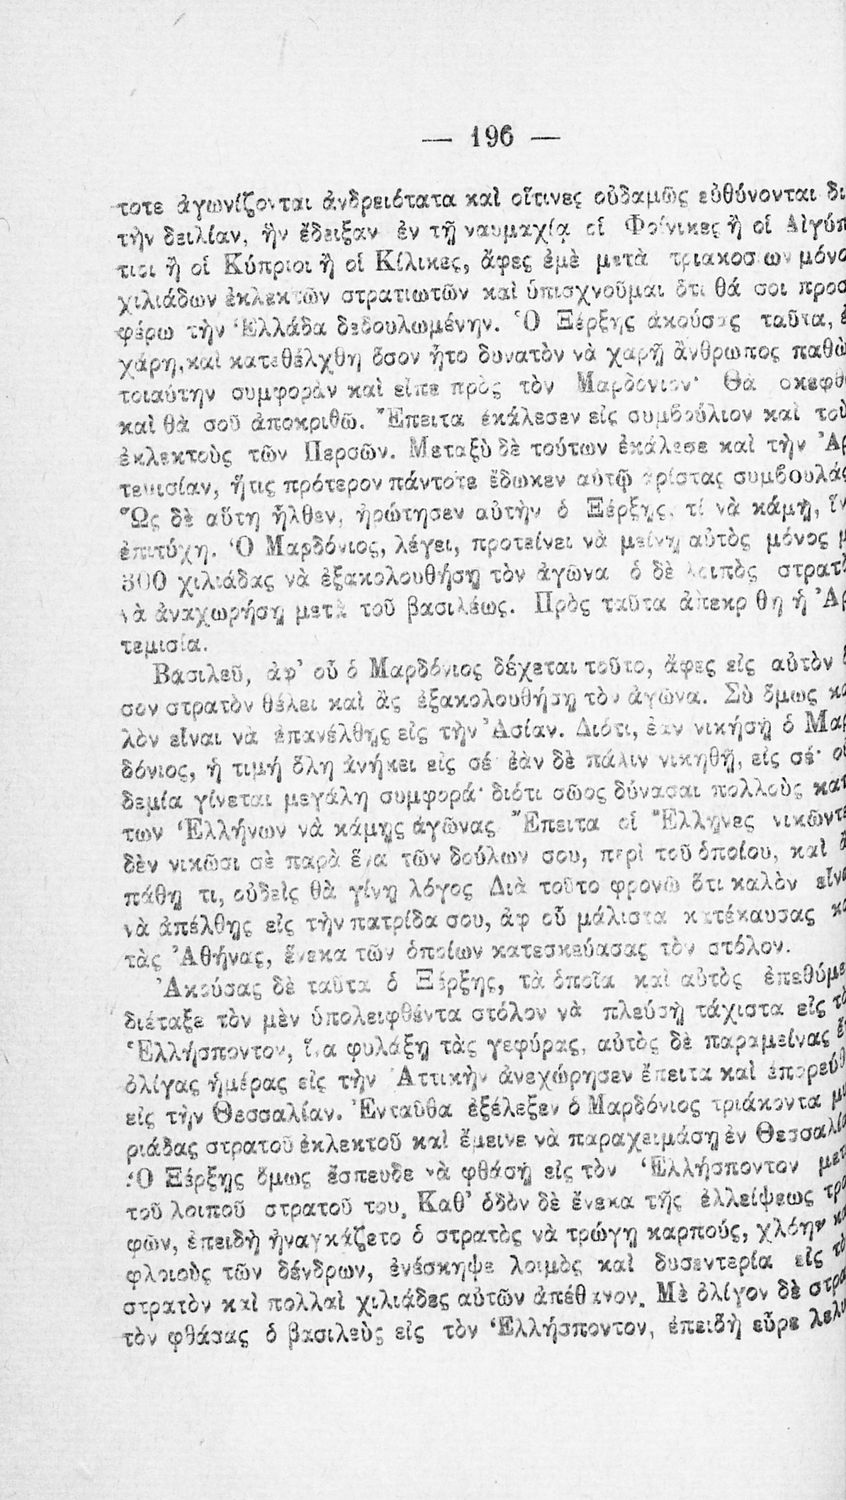 — 196 —
τοτε ἀγωνίζονται ἀνδρειότατα καὶ οἵτινες οὐδαμῶς εὐθύνονται δι
τὴν δειλίαν, ἣν ἔδειξαν ἐν τῇ ναυμαχίᾳ οἱ Φοίνικες ἢ οἱ Αἰγύπ
τιοι ἢ οἱ Κύπριοι ἢ οἱ Κίλικες, ἄφες ἐμὲ μετὰ τριακοσίων μόνο
χιλιάδων ἐκλεκτῶν στρατιωτῶν καὶ ὑπισχνοῦμαι ὅτι θά σοι προσ
φέρω τὴν Ἑλλάδα δεδουλωμένην. Ὁ Ξέρξης ἀκούσας ταῦτα, ἐ
χάρη, καὶ κατεθέλχθη ὅσον ἦτο δυνατὸν νὰ χαρῇ ἄνθρωπος παθὼ
τοιαύτην συμφορὰν καὶ εἶπε πρὸς τὸν Μαρδόνιον· Θὰ σκεφθ
καὶ θὰ σοῦ ἀποκριθῶ. Ἔπειτα ἐκάλεσεν εἰς συμβούλιον καὶ τοὺ
ἐκλεκτοὺς τῶν Περσῶν. Μεταξὺ δὲ τούτων ἐκάλεσε καὶ τὴν Ἀρ
τεμισίαν, ἥτις πρότερον πάντοτε ἔδωκεν αὐτῷ ἀρίστας συμβουλάς
Ὡς δὲ αὕτη ἦλθεν, ἠρώτησεν αὐτὴν ὁ Ξέρξης, τί νὰ κάμῃ, ἵν
ἐπιτύχῃ. Ὁ Μαρδόνιος, λέγει, προτείνει νὰ μείνῃ αὐτὸς μόνος μ
300 χιλιάδας νὰ ἐξακολουθήσῃ τὸν ἀγῶνα ὁ δὲ λοιπὸς στρατὸ
νὰ ἀναχωρήσῃ μετὰ τοῦ βασιλέως. Πρὸς ταῦτα ἀπεκρίθη ἡ Ἀρ
τεμισία.
Βασιλεῦ, ἀφ' οὗ ὁ Μαρδόνιος δέχεται τοῦτο, ἄφες εἰς αὐτὸν ὅ
σον στρατὸν θέλει καὶ ἂς ἐξακολουθήσῃ τὸν ἀγῶνα. Σὺ ὅμως κα
λὸν εἶναι νὰ ἐπανέλθῃς εἰς τὴν Ἀσίαν. Διότι, ἐὰν νικήσῃ ὁ Μαρ
δόνιος, ἡ τιμή ὅλη ἀνήκει εἰς σέ· ἐὰν δὲ πάλιν νικηθῇ, εἰς σέ· οὐ
δεμία γίνεται μεγάλη συμφορά· διότι σῶος δύνασαι πολλοὺς κατ
των Ἑλλήνων νὰ κάμῃς ἀγῶνας. Ἔπειτα οἱ Ἕλληνες νικῶντε
δὲν νικῶσι σὲ παρὰ ἕνα τῶν δούλων σου, περὶ τοῦ ὁποίου, καὶ ἂ
πάθῃ τι, οὐδεὶς θὰ γίνῃ λόγος Διὰ τοῦτο φρονῶ ὅτι καλὸν εἶνα
νὰ ἀπέλθῃς εἰς τὴν πατρίδα σου, ἀφ οὗ μάλιστα κατέκαυσας κα
τὰς Ἀθήνας, ἕνεκα τῶν ὁποίων κατεσκεύασας τὸν στόλον.
Ἀκούσας δὲ ταῦτα ὁ Ξέρξης, τὰ ὁποῖα καὶ αὐτὸς ἐπεθύμε
διέταξε τὸν μὲν ὑπολειφθέντα στόλον νὰ πλεύσῃ τάχιστα εἰς τὸ
Ἑλλήσποντον, ἵνα φυλάξῃ τὰς γεφύρας, αὐτὸς δὲ παραμείνας ἔ
ὀλίγας ἡμέρας εἰς τὴν Ἀττικὴν ἀνεχώρησεν ἔπειτα καὶ ἐπορεύθ
εἰς τὴν Θεσσαλίαν. Ἐνταῦθα ἐξέλεξεν ὁ Μαρδόνιος τριάκοντα μυ
ριάδας στρατοῦ ἐκλεκτοῦ καὶ ἔμεινε νὰ παραχειμάσῃ ἐν Θεσσαλίᾳ
Ὁ Ξέρξης ὅμως ἔσπευδε νὰ φθάσῃ εἰς τὸν Ἑλλήσποντον μετ
τοῦ λοιποῦ στρατοῦ του. Καθ' ὁδὸν δὲ ἕνεκα τῆς ἐλλείψεως τρο
φῶν, ἐπειδὴ ἠναγκάζετο ὁ στρατὸς νὰ τρώγῃ καρπούς, χλόην κα
φλοιοὺς τῶν δένδρων, ἐνέσκηψε λοιμὸς καὶ δυσεντερία εἰς τὸ
στρατὸν καὶ πολλαὶ χιλιάδες αὐτῶν ἀπέθανον. Μὲ ὀλίγον δὲ στρα
τὸν φθάσας ὁ βασιλεὺς εἰς τὸν Ἑλλήσποντον, ἐπειδὴ εὗρε λελυ